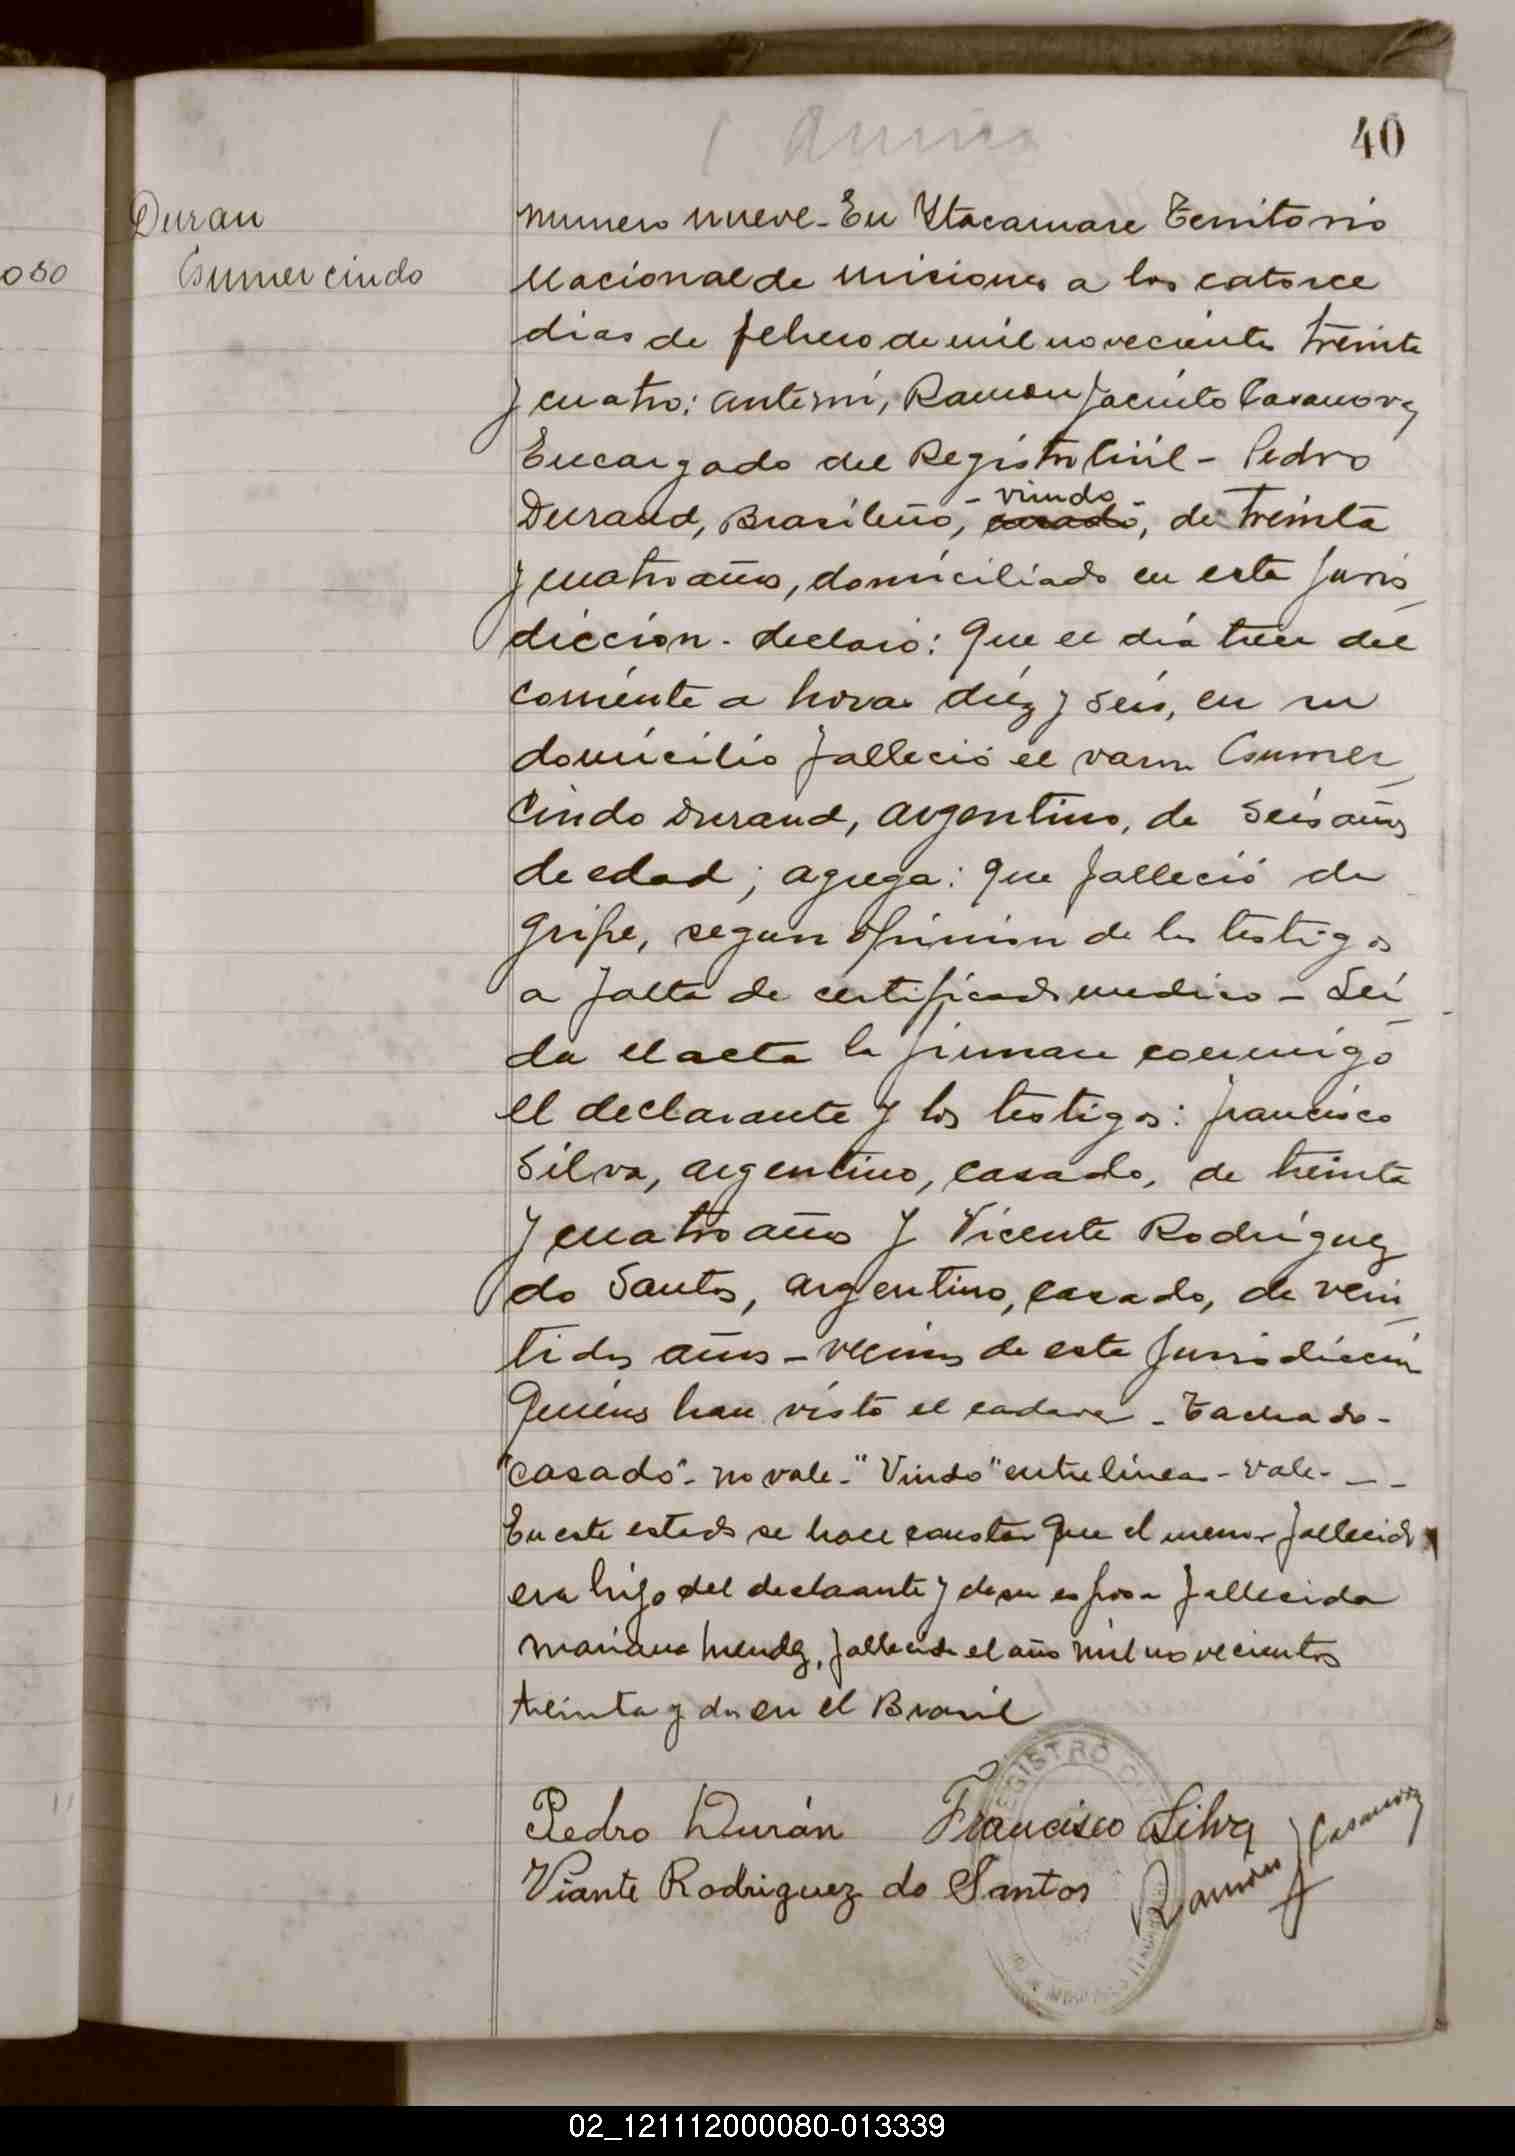 40
Duran
Gumercindo
oso
Numero nueve - En Ytacaruare Territorio
Nacional de Misiones a los catorce
dias de febrero de mil novecientos treinta
y cuatro: ante mi, Ramon Jacinto Casanova
Encargado del Registro Civil - Pedro
- viudo -
Durand, Brasileño, casado, de treinta
y cuatro años, domiciliado en esta juris
diccion - declaró: Que el día trece del
corriente a horas diéz y seis, en su
domicilio falleció el varon Gumer
cindo Durand, argentino, de seis años
de edad; agrega: que falleció de
gripe, segun opinion de los testigos
a falta de certificado medico - Lei
da el acta la firman conmigo
el declarante y los testigos: Francisco
Silva, argentino, casado, de treinta
y cuatro años y Vicente Rodriguez
do Santos, argentino, casado, de vein
tidos años - vecinos de esta jurisdiccion
Quiénes han visto el cadaver - Tachado -
"casado" - no vale - "Viudo" entrelineas - vale - - -
En este estado se hace constar que el menor fallecido
era hijo del declarante y de su esposa fallecida
Mariana Mendez, fallecida el año mil novecientos
treinta y dos en el Brasil
Pedro Durán Francisco Silva
Viante Rodriguez do Santos Ramon J Casanova
REGISTRO
02_121112000080-013339